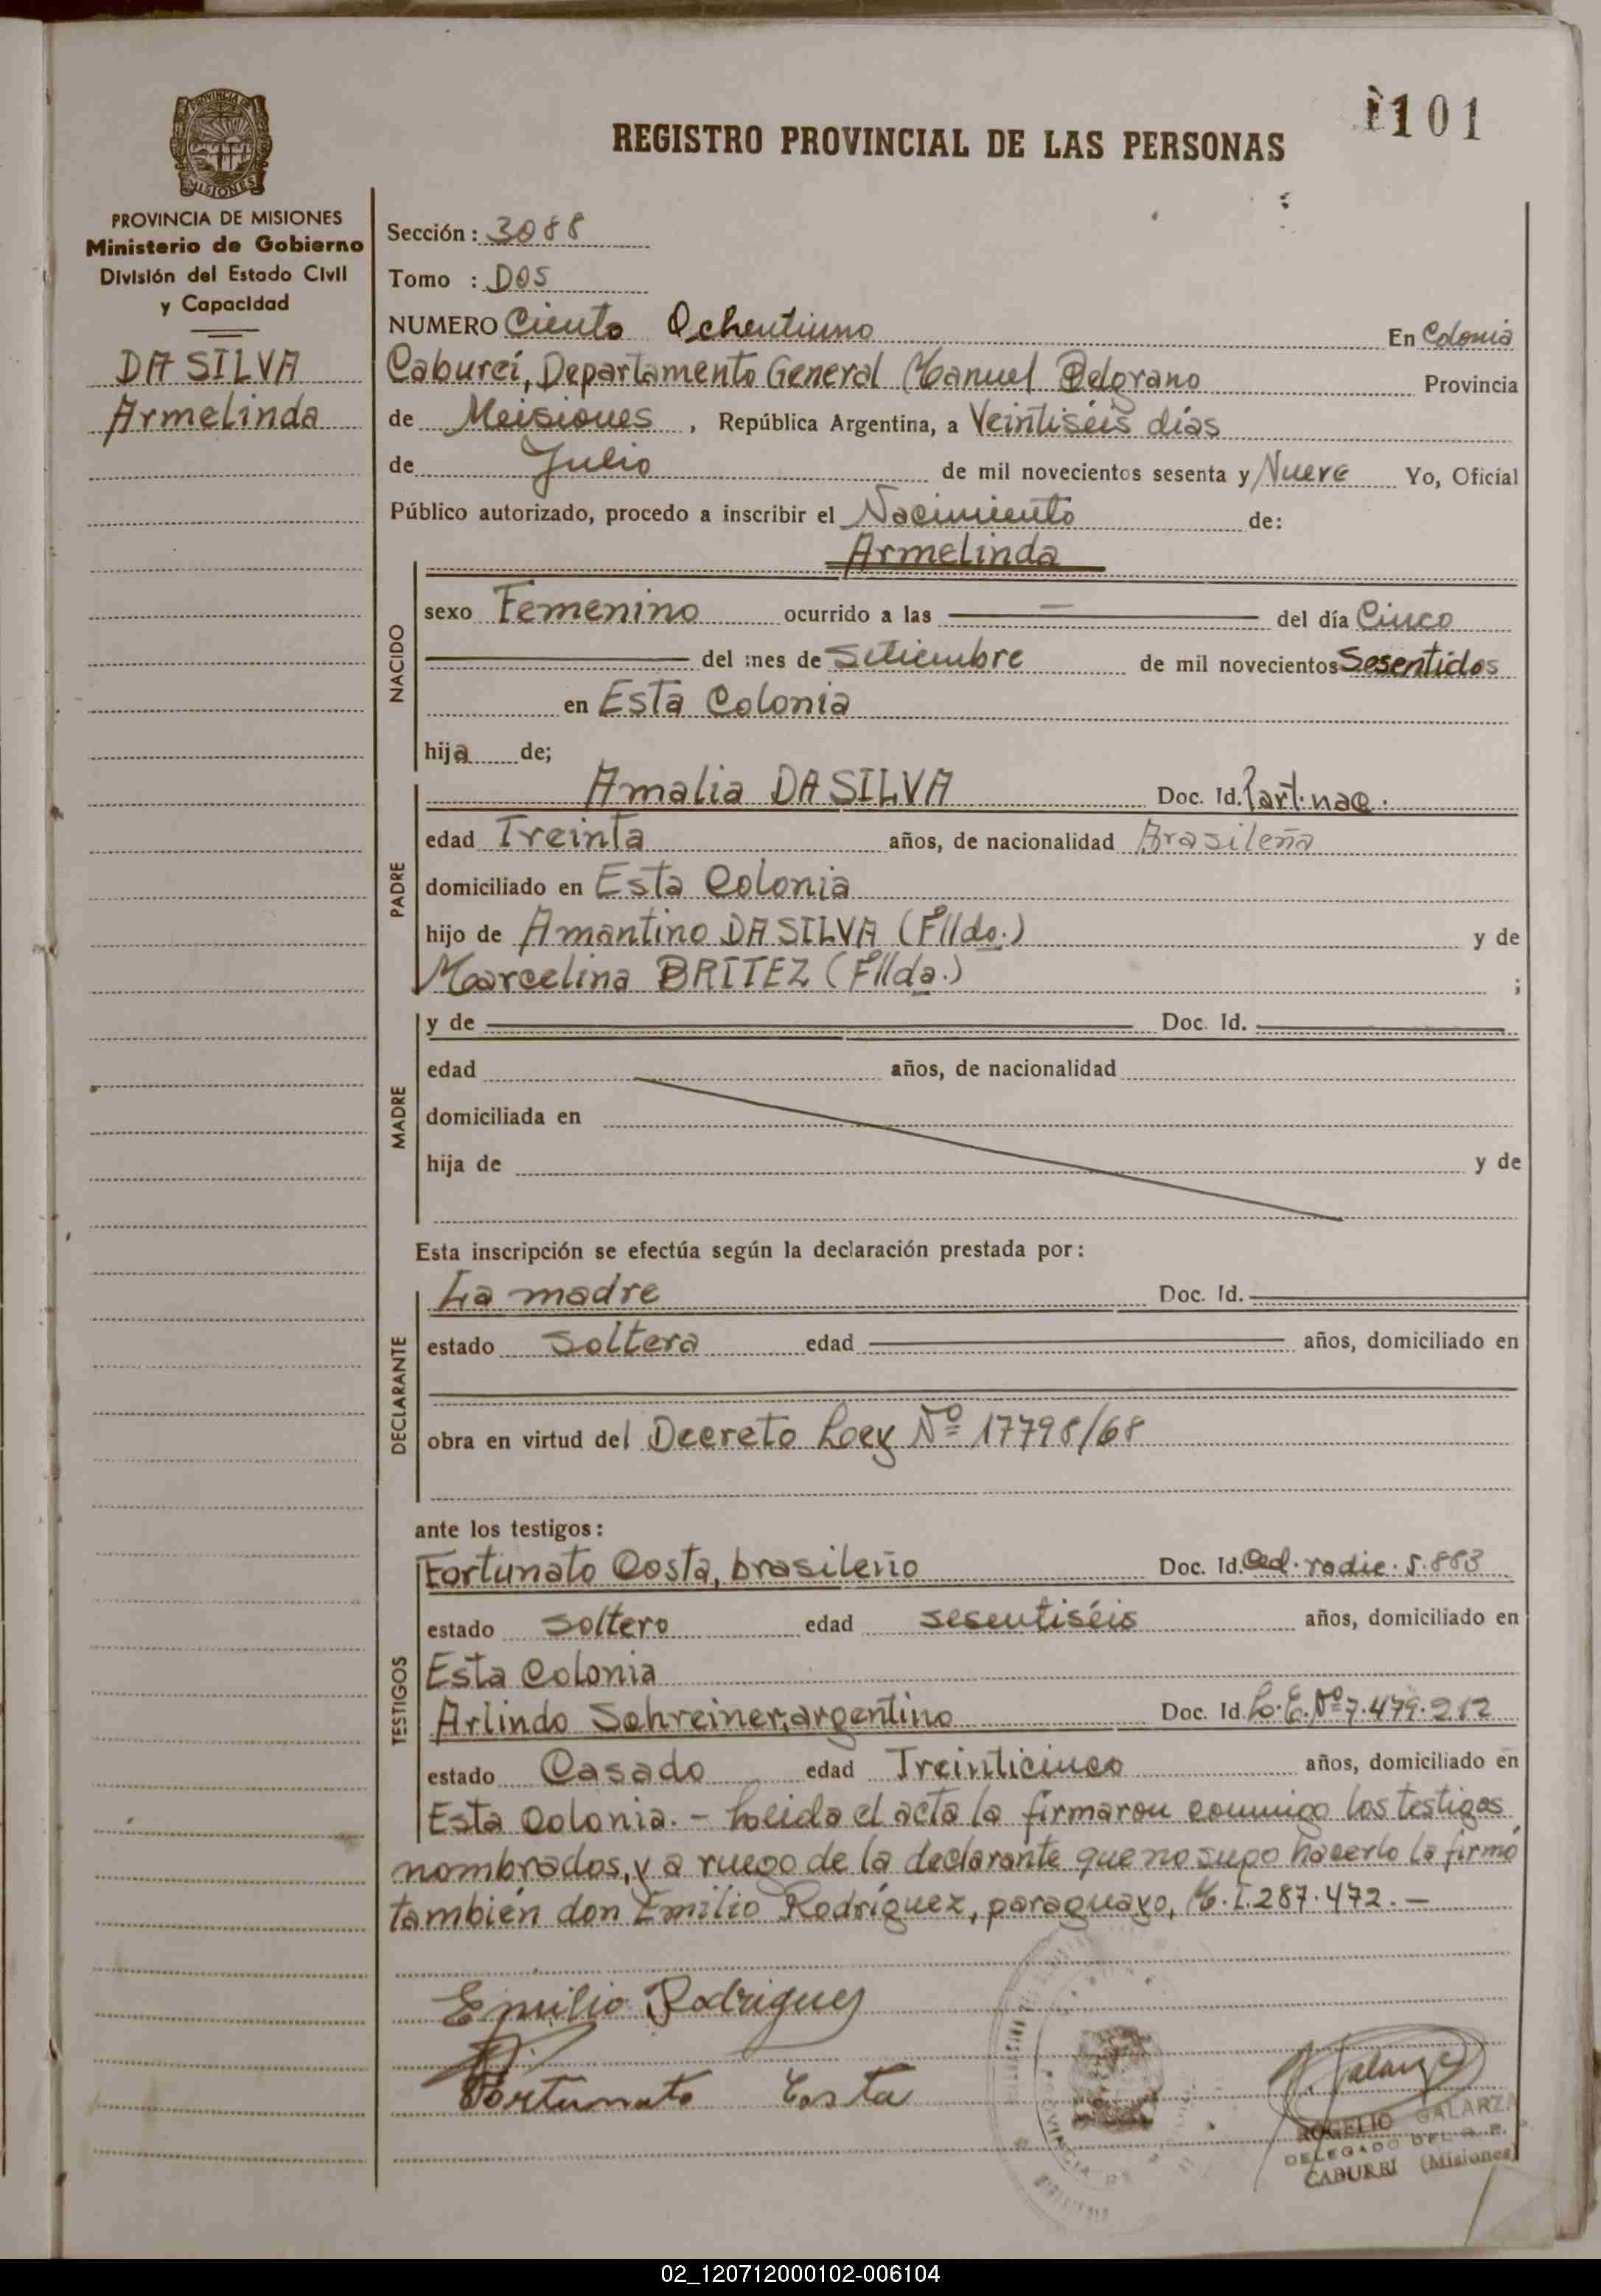 101
REGISTRO PROVINCIAL DE LAS PERSONAS
PROVINCIA DE MISIONES
MISIONES
PROVINCIA DE MISIONES
Ministerio de Gobierno
División del Estado Civil
y Capacidad
DA SILVA
Armelinda
Sección: 3088
Tomo : DOS
NUMERO Ciento Ochentiuno En Colonia
Cabureí, Departamento General Manuel Belgrano Provincia
de Meisiones, República Argentina, a Veintiséis días
de Julio de mil novecientos sesenta y Nueve Yo, Oficial
Público autorizado, procedo a inscribir el Nacimiento de:
Armelinda
NACIDO
sexo Femenino ocurrido a las — del día Cinco
del mes de Setiembre de mil novecientos Sesentidos
en Esta Colonia
hija de;
PADRE
Amalia DA SILVA Doc. Id. Part. nac.
edad Treinta años, de nacionalidad Brasileña
domiciliado en Esta Colonia
hijo de Amantino DA SILVA (Flldo.) y de
Marcelina BRITEZ (Fllda.) ;
MADRE
y de Doc. Id.
edad años, de nacionalidad
domiciliada en
hija de y de
Esta inscripción se efectúa según la declaración prestada por:
DECLARANTE
La madre Doc. Id.
estado Soltera edad años, domiciliado en
obra en virtud del Decreto Ley Nº 17798/68
ante los testigos:
TESTIGOS
Fortunato Costa, brasileño Doc. Id. Ced. radic. 5.883
estado Soltero edad sesentiséis años, domiciliado en
Esta Colonia
Arlindo Schreiner, argentino Doc. Id. L. E. Nº 7.479.212
estado Casado edad Treinticinco años, domiciliado en
Esta Colonia. - Leída el acta la firmaron conmigo los testigos
nombrados, y a ruego de la declarante que no supo hacerlo la firmó
también don Emilio Rodríguez, paraguayo, M. I. 287.472. —
Emilio Rodriguez
Fortunato Costa
Galarza
ROGELIO GALARZA
DELEGADO DEL R. P.
CABUREI (Misiones)
02_120712000102-006104